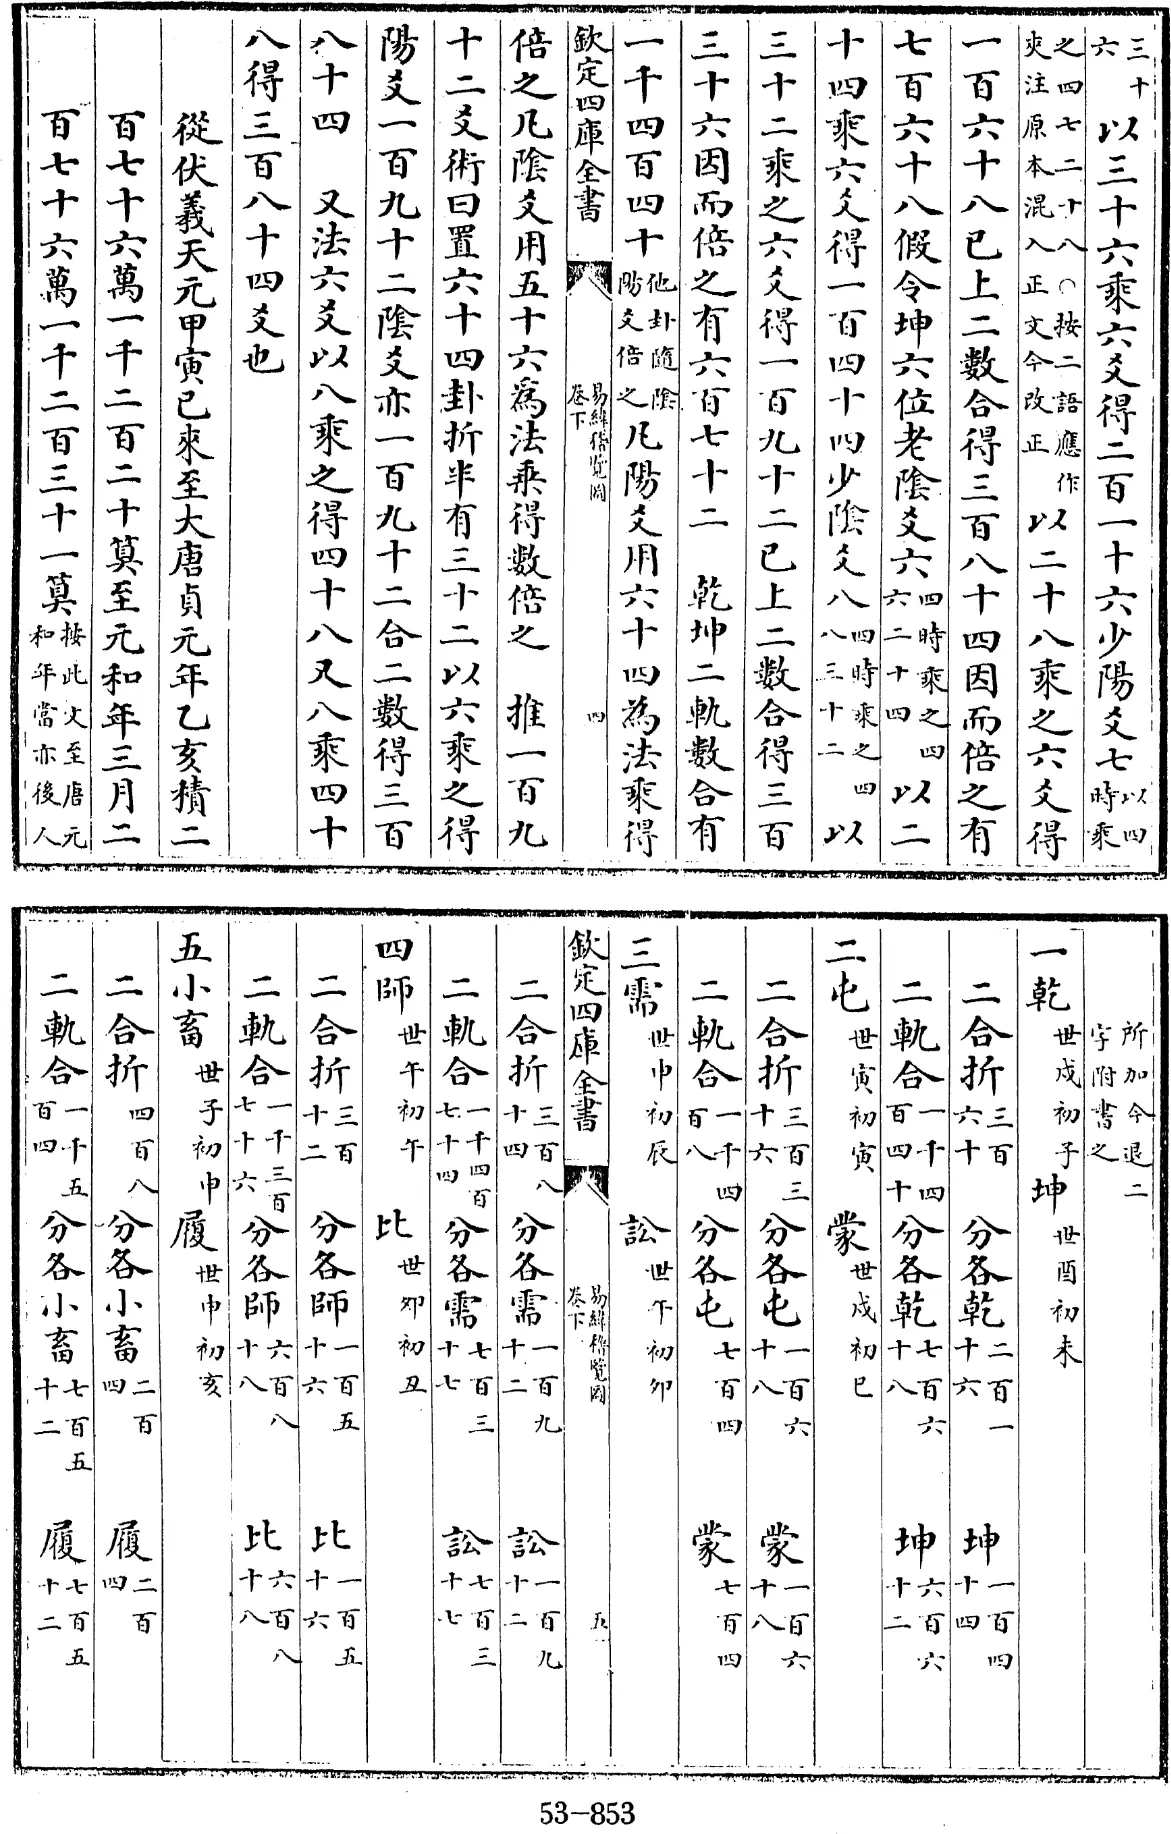 三十六以三十六乘六爻得二百一十六少陽爻七以四時乘
之四七二十八○按二語應作夾注原本混入正文今改正以二十八乘之六爻得
一百六十八已上二數合得三百八十四因而倍之有
七百六十八假令坤六位老陰爻六四時乘之四六二十四以二
十四乘六爻得一百四十四少陰爻八四時乘之四八三十二以
三十二乘之六爻得一百九十二已上二數合得三百
三十六因而倍之有六百七十二 乾坤二軌數合有
一千四百四十他卦隨陰陽爻倍之凡陽爻用六十四為法乘得
欽定四庫全書 易緯稽覽圖 卷下 四
倍之凡陰爻用五十六為法乘得數倍之 推一百九
十二爻術曰置六十四卦折半有三十二以六乘之得
陽爻一百九十二陰爻亦一百九十二合二數得三百
八十四 又法六爻以八乘之得四十八又八乘四十
八得三百八十四爻也
從伏羲天元甲寅已來至大唐貞元年乙亥積二
百七十六萬一千二百二十算至元和年三月二
百七十六萬一千二百三十一算按此文至唐元和年當亦後人
所加今退二字附書之
一乾世戌初子坤世酉初未
二合折三百六十分各乾二百一十六坤一百四十四
二軌合一千四百四十分各乾七百六十八坤六百六十二
二屯世寅初寅蒙世戌初巳
二合折三百三十六分各屯一百六十八蒙一百六十八
二軌合一千四百八分各屯七百四蒙七百四
三需世申初辰訟世午初卯
欽定四庫全書 易緯稽覽圖 卷下 五
二合折三百八十四分各需一百九十二訟一百九十二
二軌合一千四百七十四分各需七百三十七訟七百三十七
四師世午初午比世卯初丑
二合折三百十二分各師一百五十六比一百五十六
二軌合一千三百七十六分各師六百八十八比六百八十八
五小畜世子初申履世申初亥
二合折四百八分各小畜二百四履二百四
二軌合一千五百四分各小畜七百五十二履七百五十二
53-853